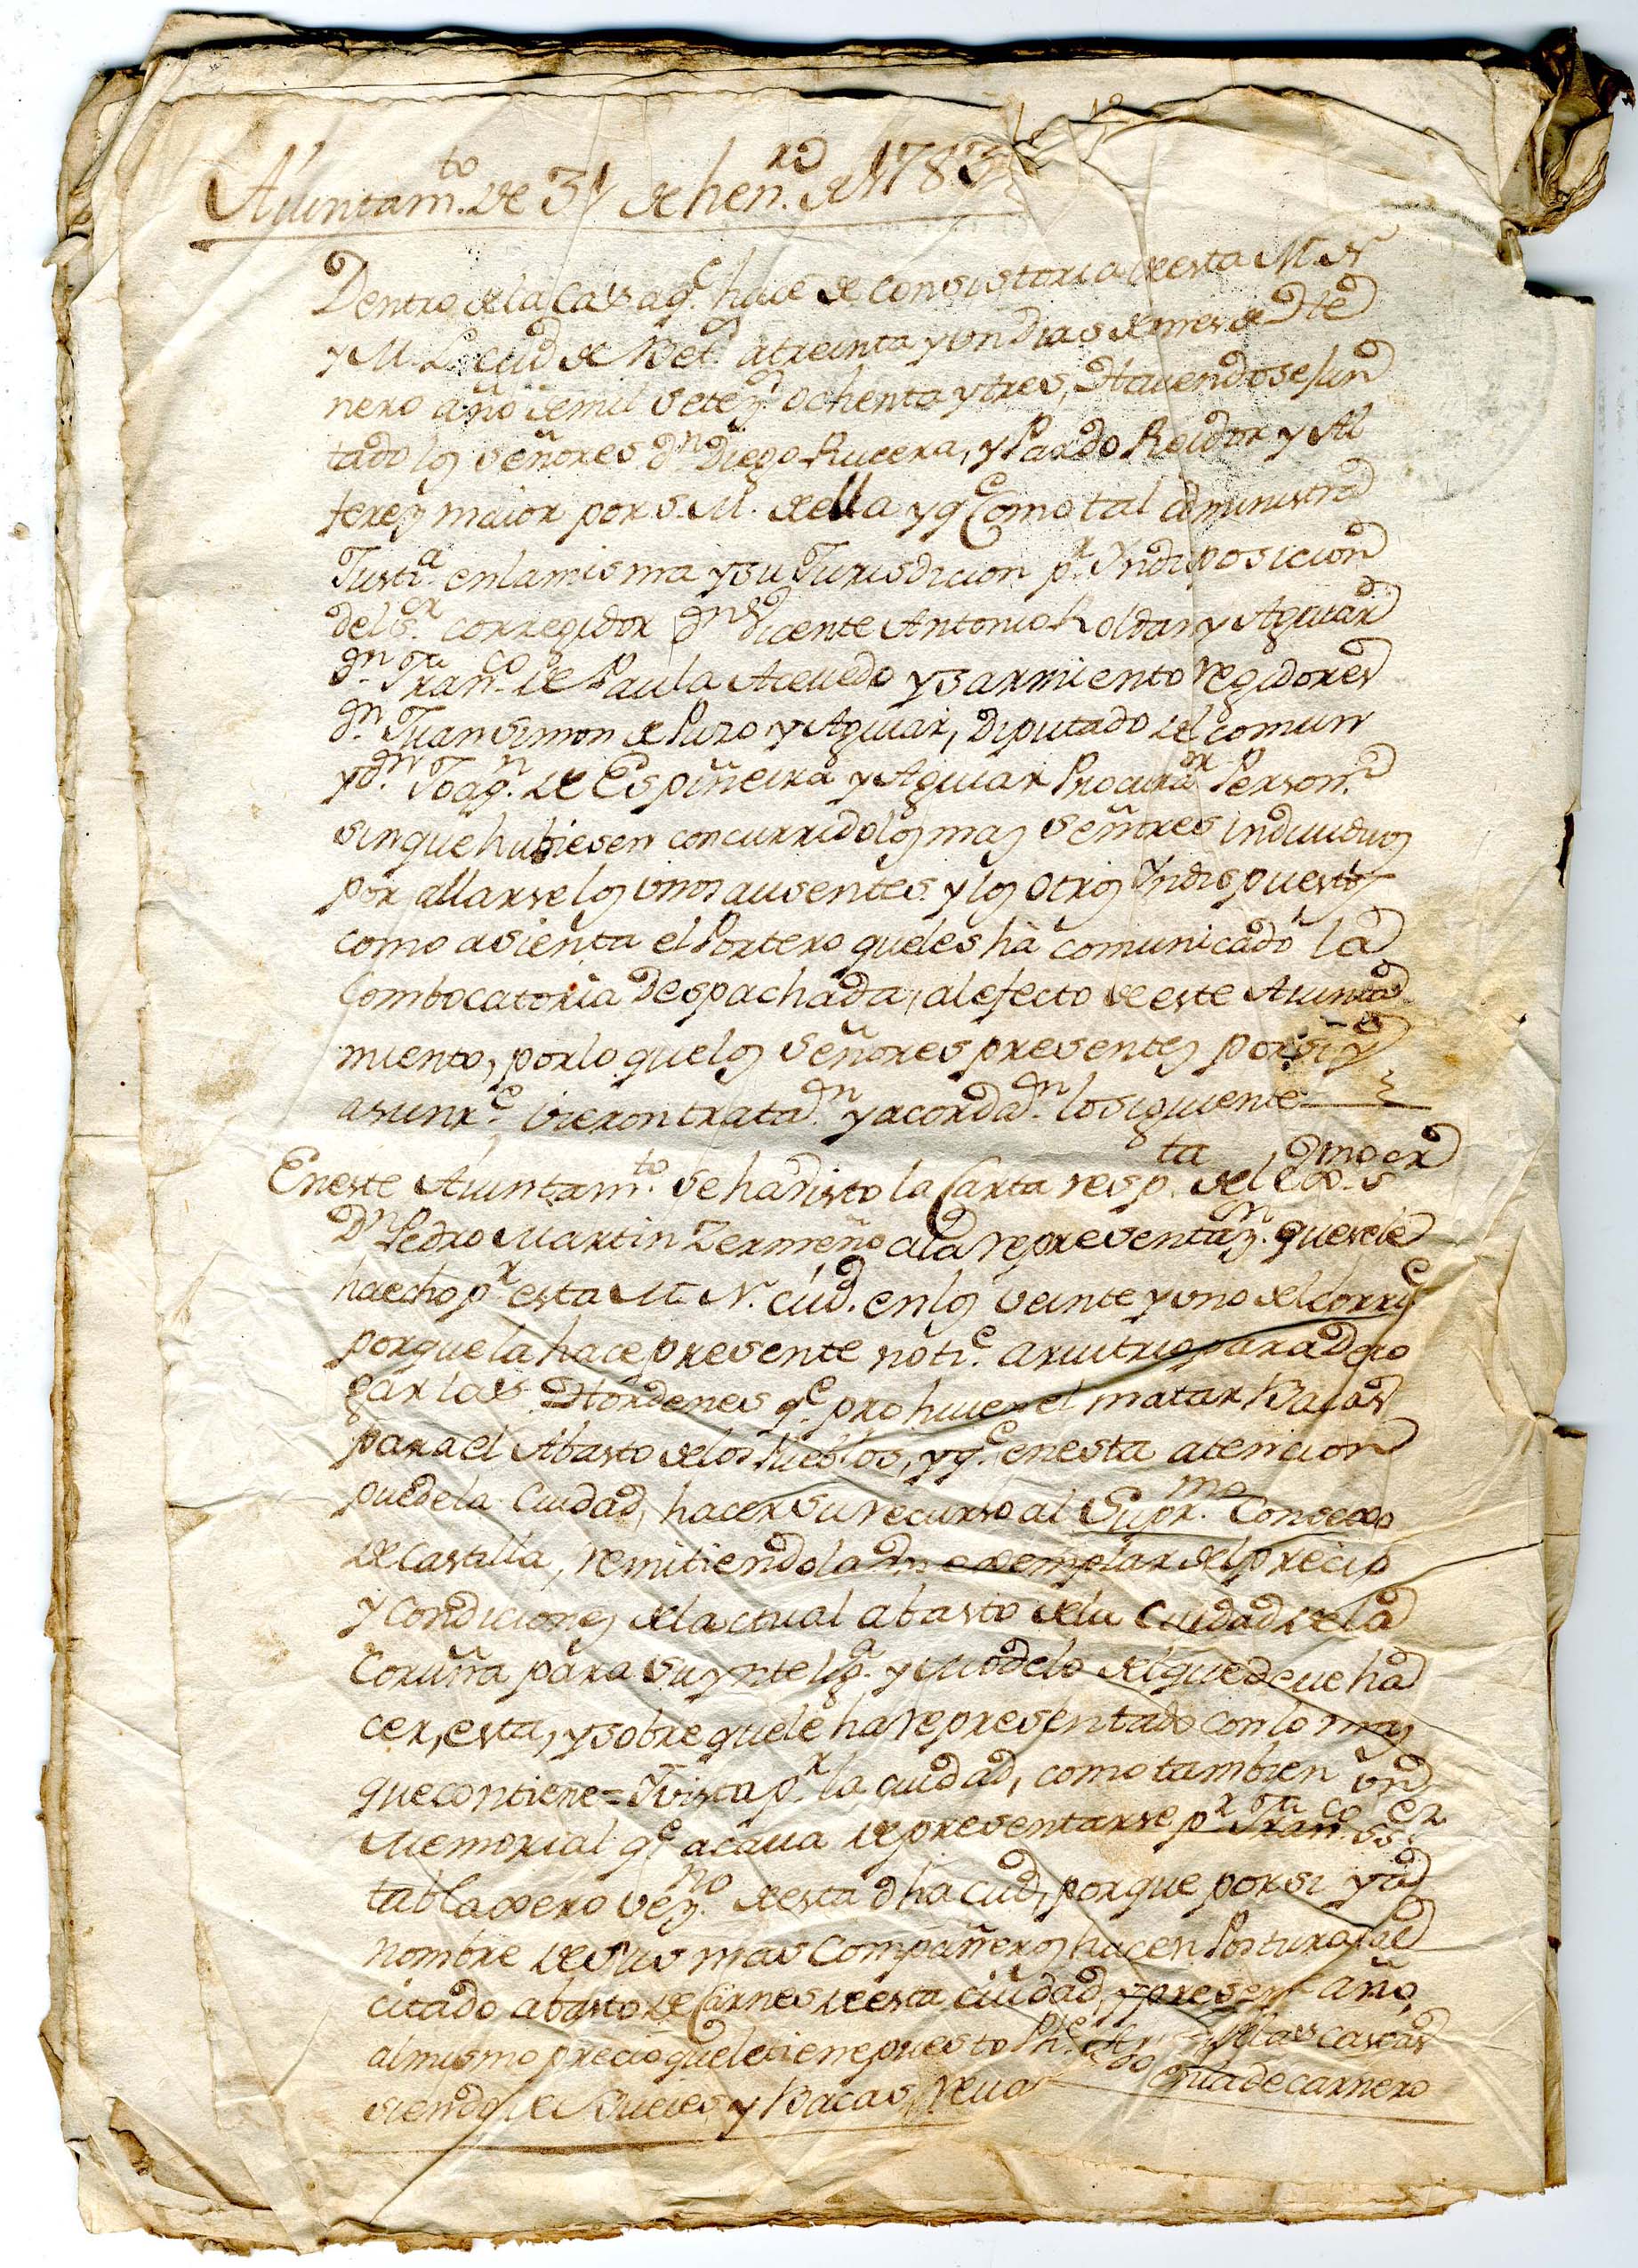 Aiuntam.to de 31 de hen.ro de 1783
Dentro de la Casa q.e hace de Consistorio de esta M. N.
y M. L. ciud de Bet.s a treinta y un dias de mes de He
nero año de mil setez.s ochenta y tres, Hauiendose Jun
tado los señores d.n Diego Rucera, y Pardo Reidor y Al
ferez maior por S. M. de ella y q.e Como tal administra
Justi.a en la misma y su Jurisdicion p.r Yndiposicion
del s.or corregidor d.n Vicente Antonio Roldan y Aguiar
d.n Fran.co de Paula Acevedo y sarmiento regidores
d.n Juan simon de Puzo y Aguiar, Diputado del comun
y d.n Joaq.n de Espiñeira y Aguiar Procura.or Person.o
sin que hubiesen concurrido los mas señores indiuiduos
por allarse los unos ausentes y los otros Yndispuestos
como asienta el Portero que les hà comunicado la
Combocatoria despachada, al efecto de este Aiunta
miento, por lo que los señores presentes por si y
asunr.e vieron tratad.n y acordad.n lo siguiente
En este Aiuntam.to se ha visto la Carta resp.ta del Exmo s.or
D.n Pedro Martin Zermeño a la representaz.n que se le
ha echo p.r esta M. N. ciud. en los veinte y uno del corr.te
porque la hace presente no ti.e aruitrios para Dero
gar las Hordenes q.e prohiuen el matar Bacas
para el Abasto de los Pueblos, y q.e en esta atencion
puede la Ciudad, hacer su recurso al Supr.mo Consexo
de Castilla, remitiendola un exemplar del precio
y Condiciones del actual abasto de la Ciudad de la
Coruña para su yntelig.a y modelo del que deue ha
cer, esta, y sobre que le ha representado con lo mas
que contiene = Y vista p.r la ciudad, como tambien un
Memorial q.e acaua de presentarse p.r Fran.co
tablaxero vez.no de esta dha Ciud, porque por si y a
nombre de sus mas Compañeros hacen Postura al
citado abasto de Carnes de esta ciudad, y presente año,
al mismo precio que le tiene puesto Ph.e de las casas
siendo de Bueies y Bacas, de carnero